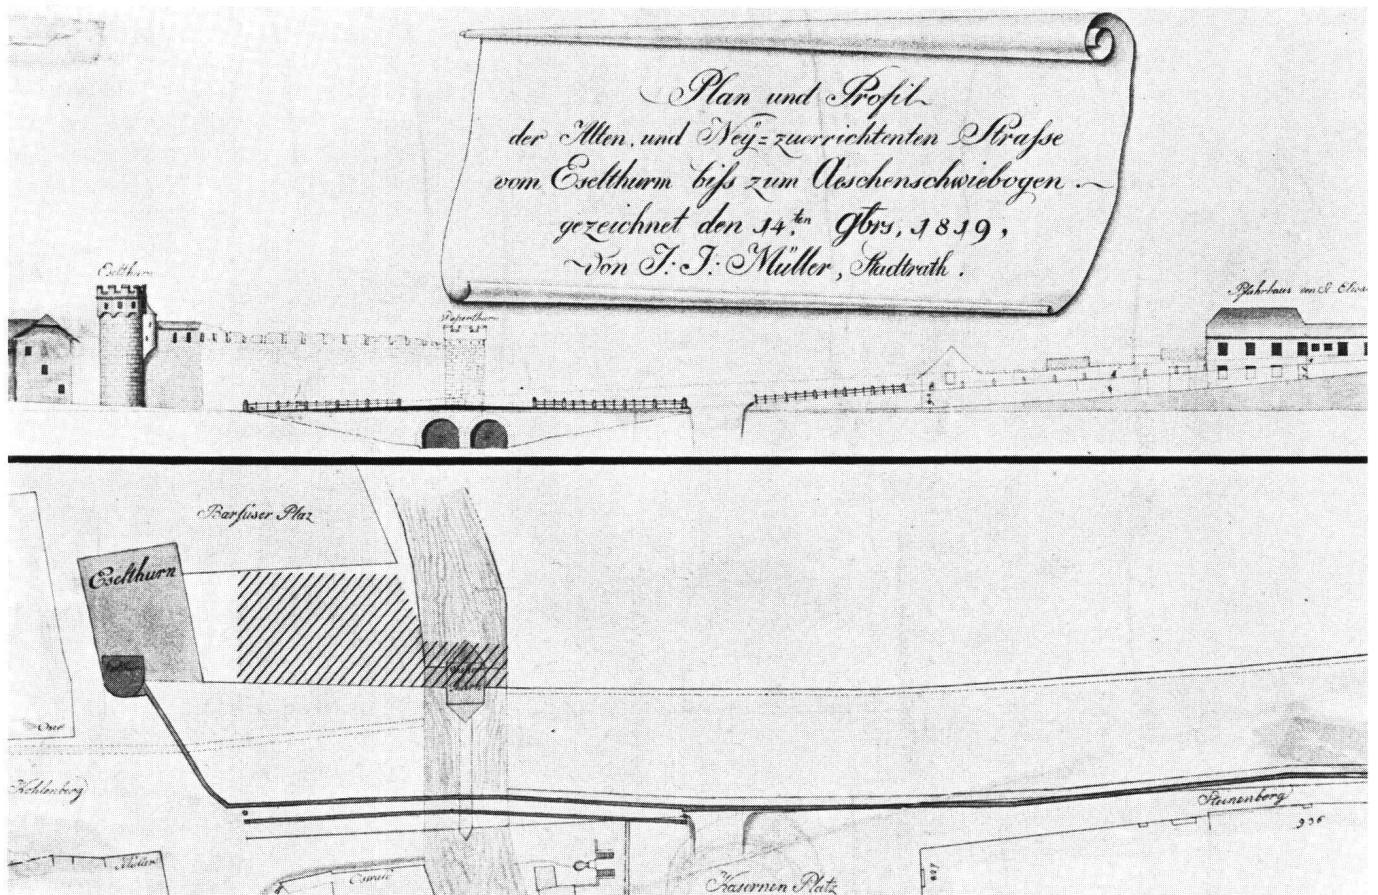 Plan und Profil
der Alten, und Neÿ=zuerrichtenten Strasse
vom Eselthurm biss zum Aeschenschwiebogen.
gezeichnet den 14.ten 9brs, 1819,
von J: J: Müller, Stadtrath.
Eselthurn
Pfahrhaus von S. Elisa
Barfüser Plaz
Eselthurn
Kohlenberg
Steinenberg
936
927
Kasernen Platz